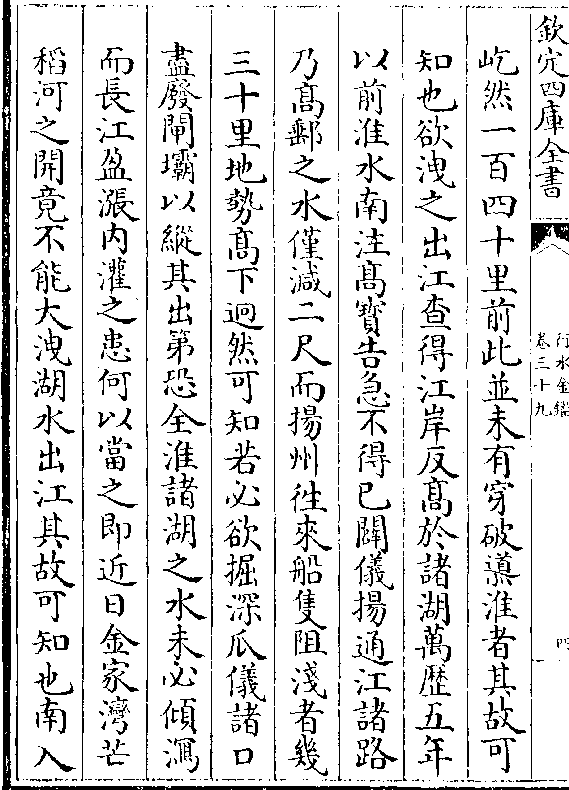 欽定四庫全書
行水金鑑
卷三十九
四
屹然一百四十里前此並未有穿破導淮者其故可
知也欲洩之出江查得江岸反高於諸湖萬歷五年
以前淮水南注高寳告急不得已闢儀揚通江諸路
乃高郵之水僅減二尺而揚州徃來船隻阻淺者幾
三十里地勢高下迥然可知若必欲掘深瓜儀諸口
盡廢閘壩以縱其出第恐全淮諸湖之水未必傾瀉
而長江盈漲内灌之患何以當之即近日金家灣芒
稻河之開竟不能大洩湖水出江其故可知也南入